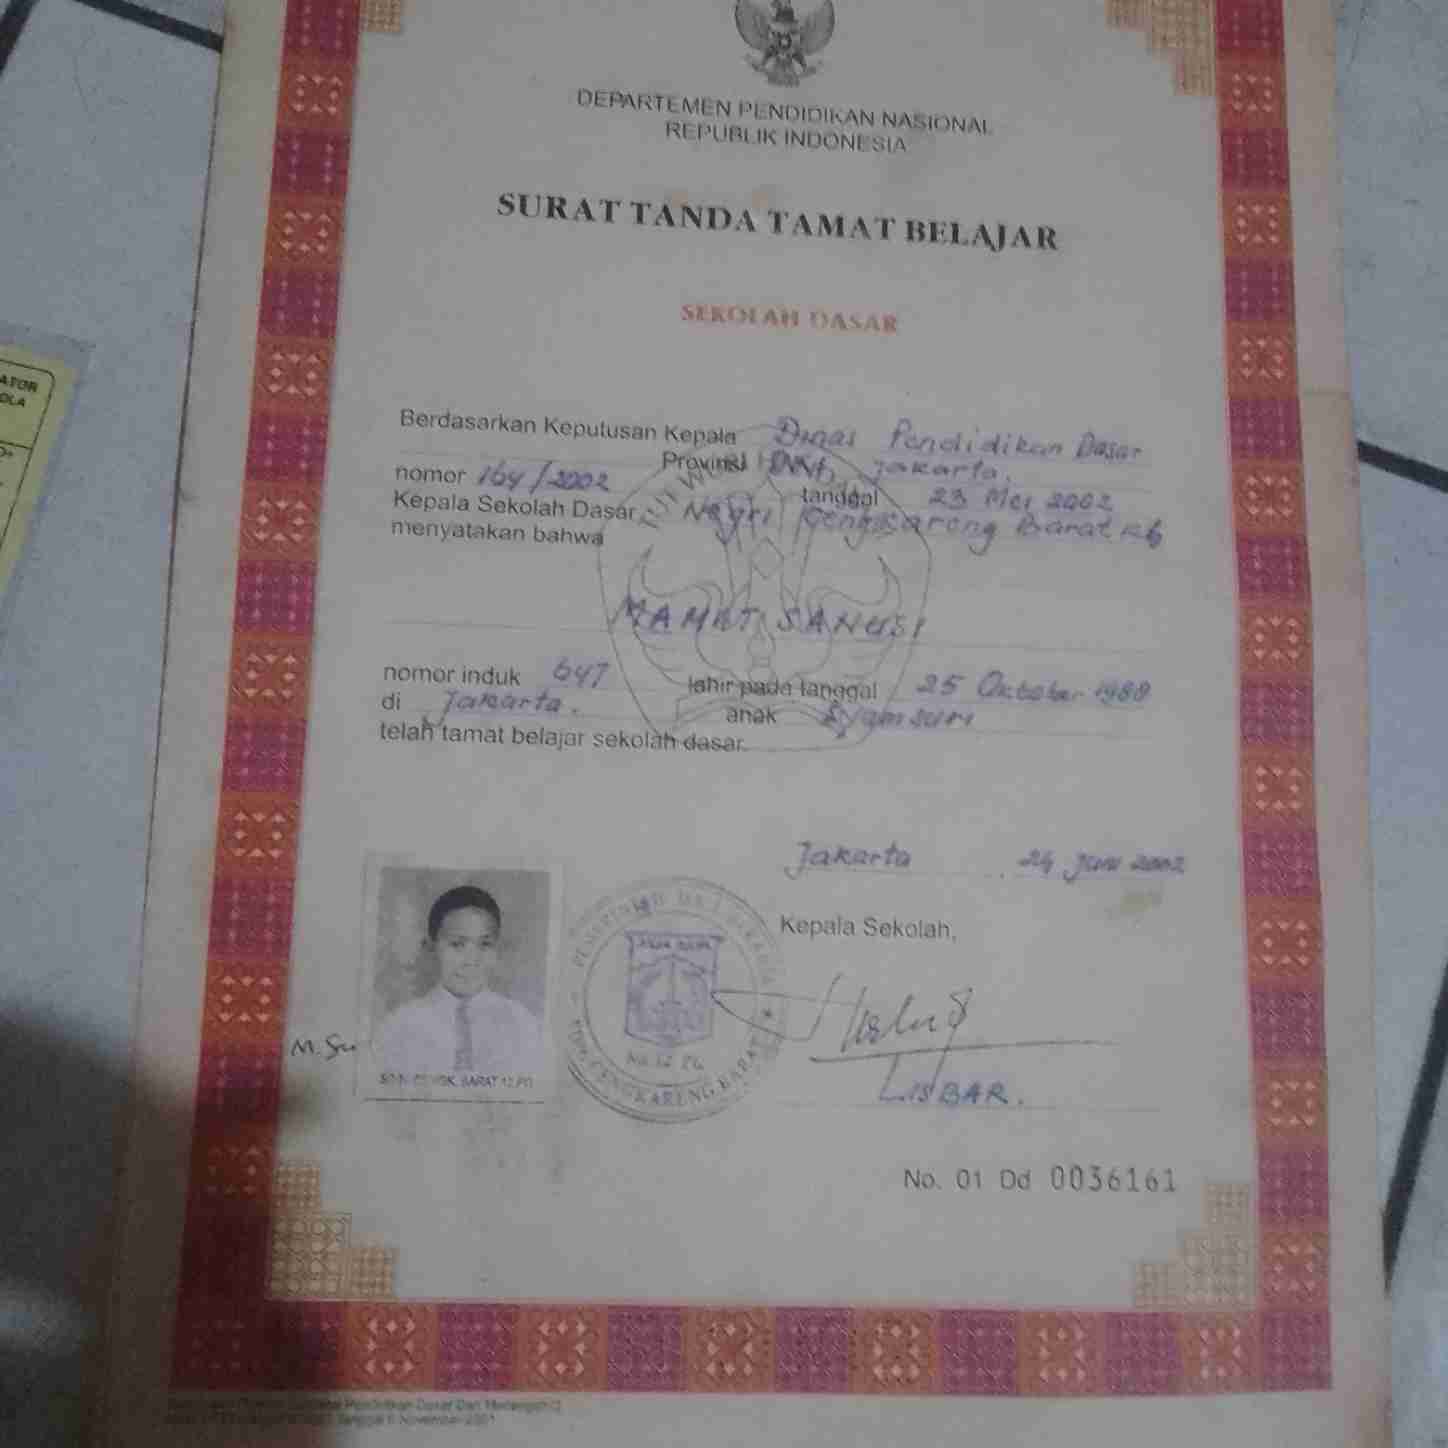 DEPARTEMEN PENDIDIKAN NASIONAL
REPUBLIK INDONESIA
SURAT TANDA TAMAT BELAJAR
SEKOLAH DASAR
Berdasarkan Keputusan Kepala Dinas Pendidikan Dasar
Provinsi Jakarta.
nomor 164/2002 tanggal 23 Mei 2002
Kepala Sekolah Dasar Negri Cengkareng Barat
menyatakan bahwa
MAMAT SANUSI
nomor induk 647 lahir pada tanggal 25 Oktober 1988
di Jakarta. anak Syamsuri
telah tamat belajar sekolah dasar.
Jakarta 24 Juni 2002
Kepala Sekolah,
M.Su
BARAT 12 PG
CENGKARENG BARAT
LISBAR.
No. 01 Dd 0036161
ATOR
OLA